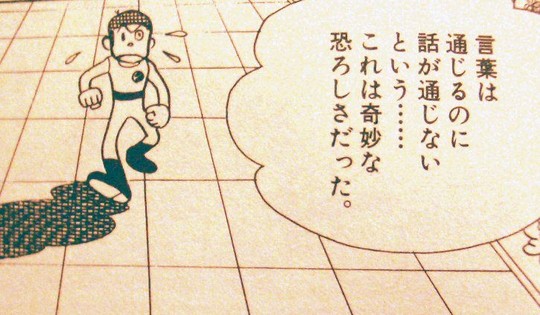 言葉は
通じるのに
話が通じない
という……
これは奇妙な
恐ろしさだった。